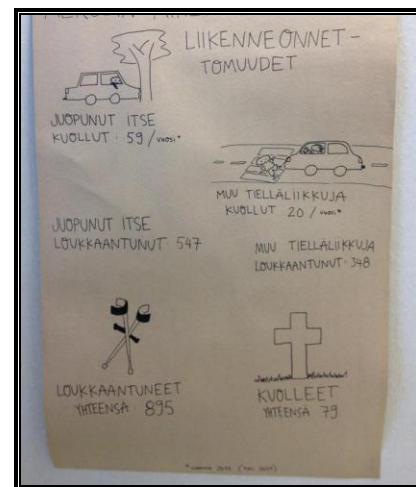 LIIKENNEONNET-
TOMUUDET
JUOPUNUT ITSE
KUOLLUT · 59 / vuosi*
MUU TIELLÄLIIKKUJA
KUOLLUT 20 / vuosi*
JUOPUNUT ITSE
LOUKKAANTUNUT 547
MUU TIELLÄLIIKKUJA
LOUKKAANTUNUT · 348
LOUKKAANTUNEET
YHTEENSÄ 895
KUOLLEET
YHTEENSÄ 79